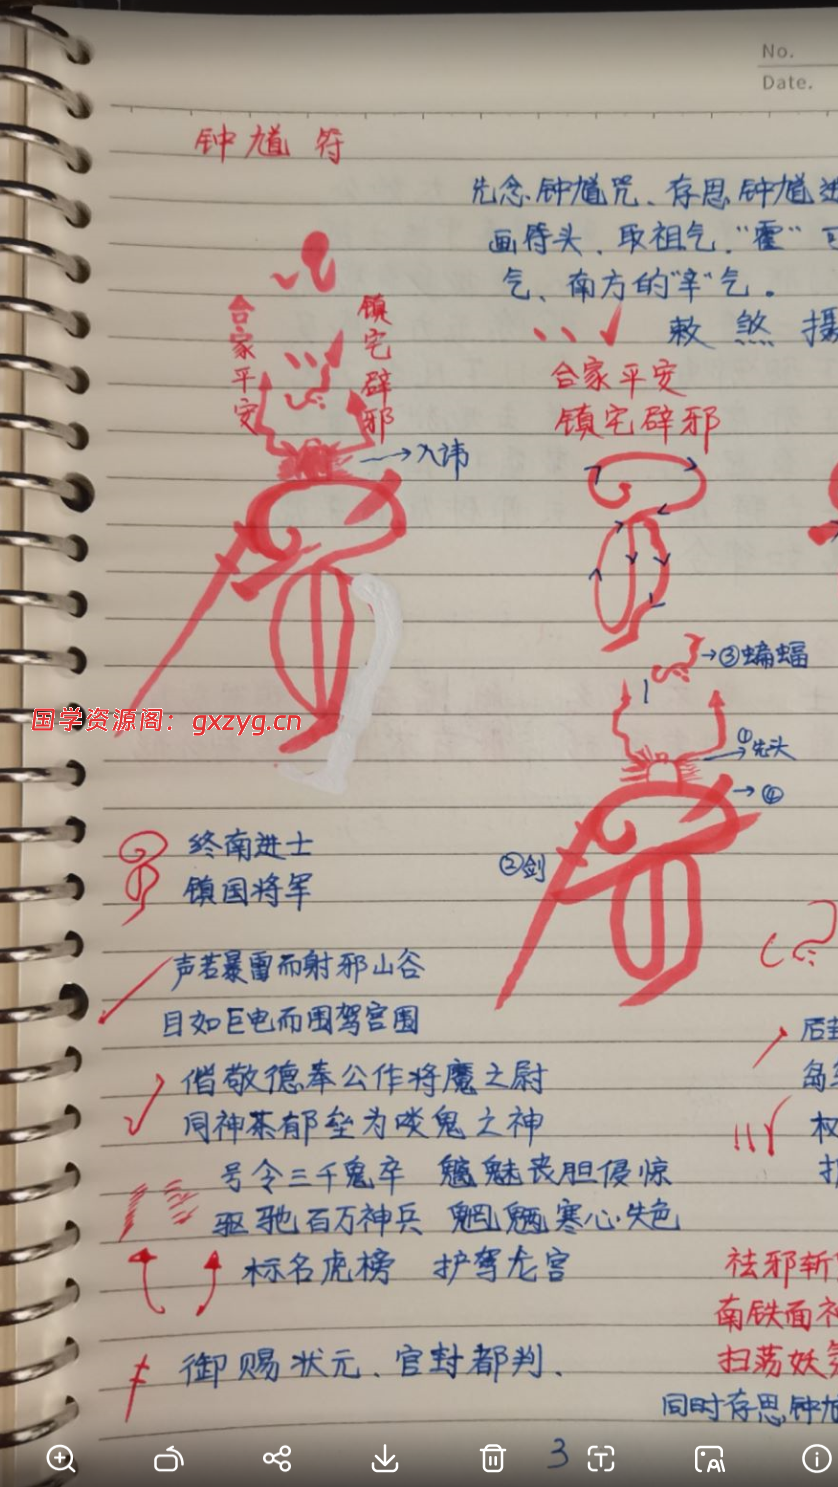 No.
Date.
钟馗 符
先念钟馗咒、存思钟馗进
画符头、取祖气."霍"
气、南方的"辛"气。
敕 煞 摄
合家平安
镇宅辟邪
合家平安
镇宅辟邪
→入讳
→③蝙蝠
①先头
→④
②剑
国学资源阁：gxzyg.cn
终南进士
镇国将军
声若暴雷而射邪山谷
目如巨电而围驾宫围
后封
偕敬德奉公作将魔之尉
同神荼郁垒为啖鬼之神
权
号令三千鬼卒 魑魅丧胆侵惊
驱驰百万神兵 魍魉寒心失色
标名虎榜 护驾龙宫
祛邪斩
南铁面
御赐状元、官封都判、
扫荡妖
同时存思钟馗
3